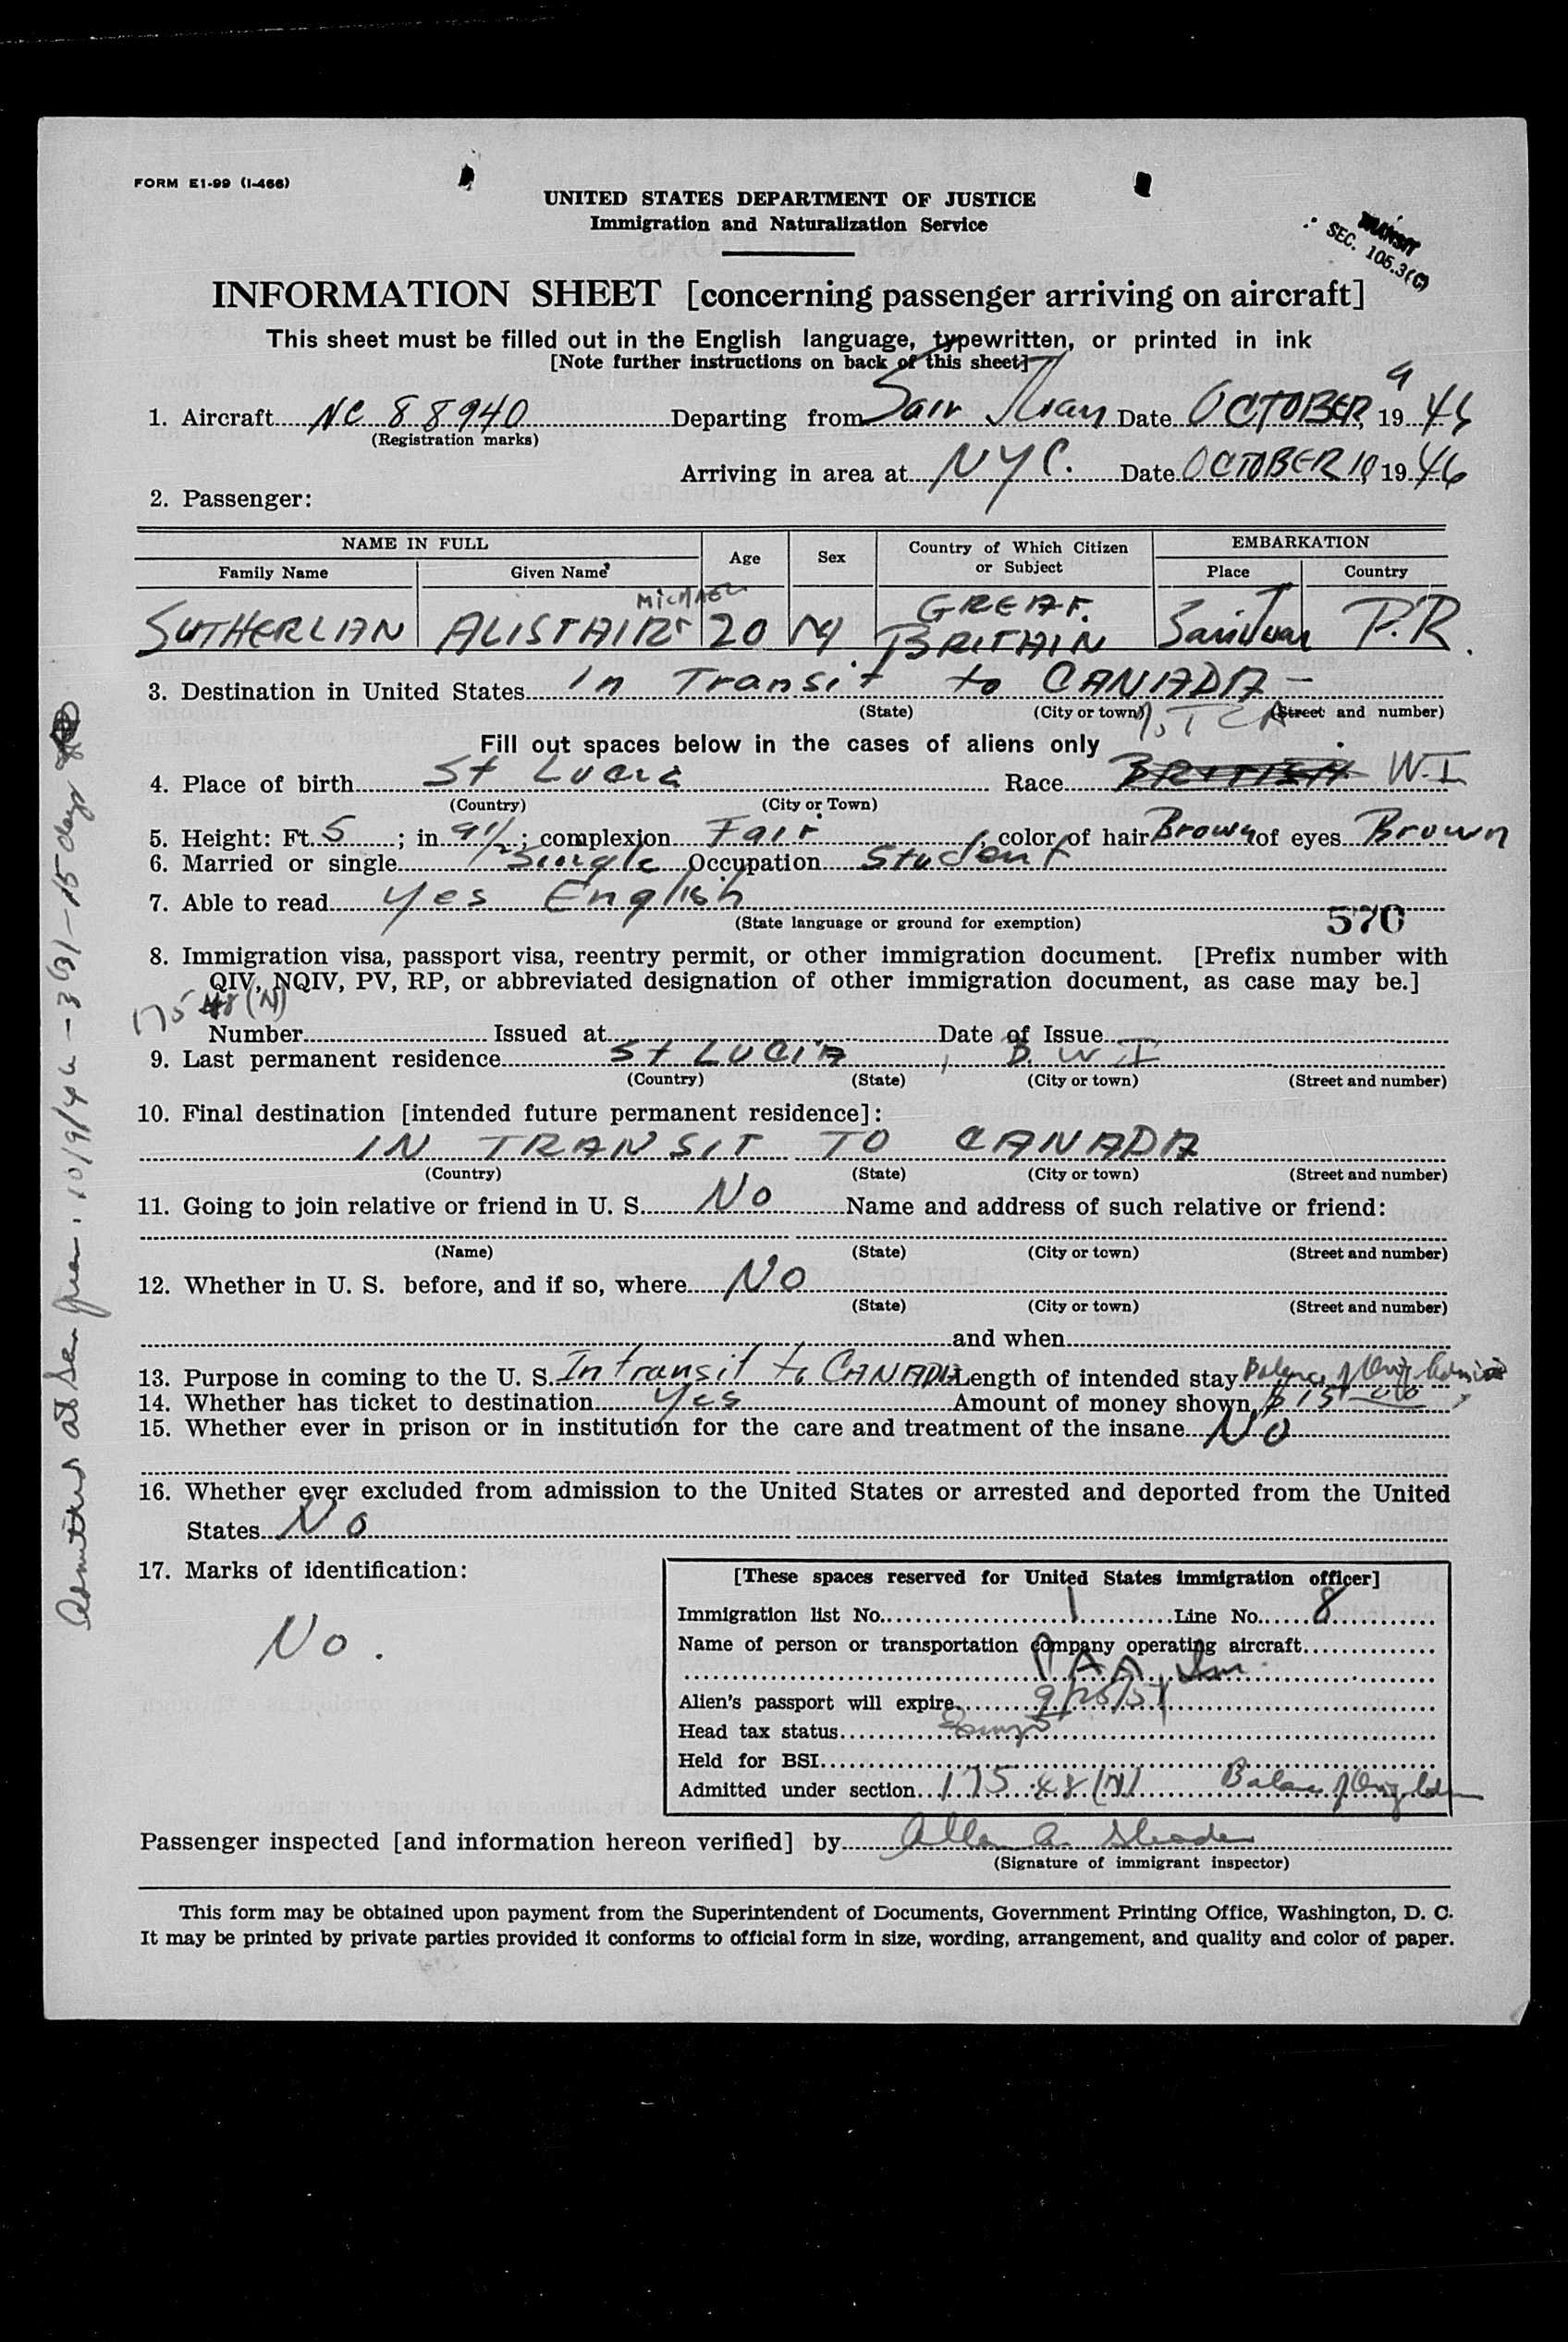 FORM E1-99 (I-466)
UNITED STATES DEPARTMENT OF JUSTICE
Immigration and Naturalization Service
TRANSIT
SEC. 105.3(C)
INFORMATION SHEET [concerning passenger arriving on aircraft]
This sheet must be filled out in the English language, typewritten, or printed in ink
[Note further instructions on back of this sheet]
1. Aircraft NC 88940 Departing from San Juan Date OCTOBER 9 1946
(Registration marks)
Arriving in area at NYC. Date OCTOBER 10 1946
2. Passenger:
NAME IN FULL Age Sex Country of Which Citizen or Subject EMBARKATION
Family Name Given Name Place Country
MICHAEL
SUTHERLAN ALISTAIR 20 M GREAT BRITAIN San Juan P.R.
3. Destination in United States In Transit to CANADA -
(State) (City or town) (Street and number)
Fill out spaces below in the cases of aliens only
4. Place of birth St Lucia Race BRITISH W.I
(Country) (City or Town)
5. Height: Ft. 5; in 9 1/2; complexion Fair; color of hair Brown of eyes Brown
6. Married or single Single Occupation Student
7. Able to read Yes English
(State language or ground for exemption)
570
8. Immigration visa, passport visa, reentry permit, or other immigration document. [Prefix number with
QIV, NQIV, PV, RP, or abbreviated designation of other immigration document, as case may be.]
175 48 (N)
Number Issued at Date of Issue
9. Last permanent residence St LUCIA, B.W.I
(Country) (State) (City or town) (Street and number)
10. Final destination [intended future permanent residence]:
IN TRANSIT TO CANADA
(Country) (State) (City or town) (Street and number)
11. Going to join relative or friend in U. S. No Name and address of such relative or friend:
(Name) (State) (City or town) (Street and number)
12. Whether in U. S. before, and if so, where NO
(State) (City or town) (Street and number)
and when
13. Purpose in coming to the U. S. In transit to CANADA Length of intended stay Balance of Orig
14. Whether has ticket to destination Yes Amount of money shown
15. Whether ever in prison or in institution for the care and treatment of the insane NO
16. Whether ever excluded from admission to the United States or arrested and deported from the United
States No
17. Marks of identification:
No.
[These spaces reserved for United States immigration officer]
Immigration list No. 1 Line No. 8
Name of person or transportation company operating aircraft
PAA, Inc.
Alien's passport will expire 9/25/51
Head tax status
Held for BSI
Admitted under section 175.48(N) Balance of Orig
Passenger inspected [and information hereon verified] by Allen A.
(Signature of immigrant inspector)
This form may be obtained upon payment from the Superintendent of Documents, Government Printing Office, Washington, D. C.
It may be printed by private parties provided it conforms to official form in size, wording, arrangement, and quality and color of paper.
Admitted at San Juan. 10/9/46 - 3(3) - 15 days